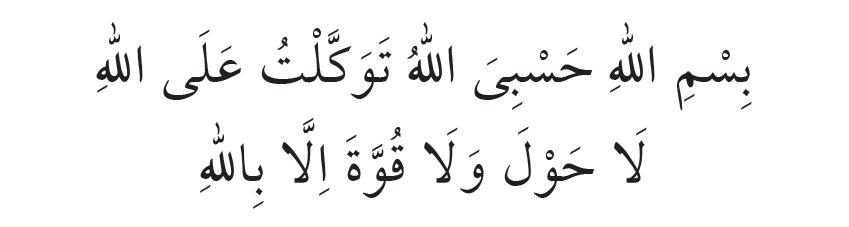 بِسْمِ اللهِ حَسْبِىَ اللهُ تَوَكَّلْتُ عَلَى اللهِ
لَا حَوْلَ وَلَا قُوَّةَ اِلَّا بِاللهِ